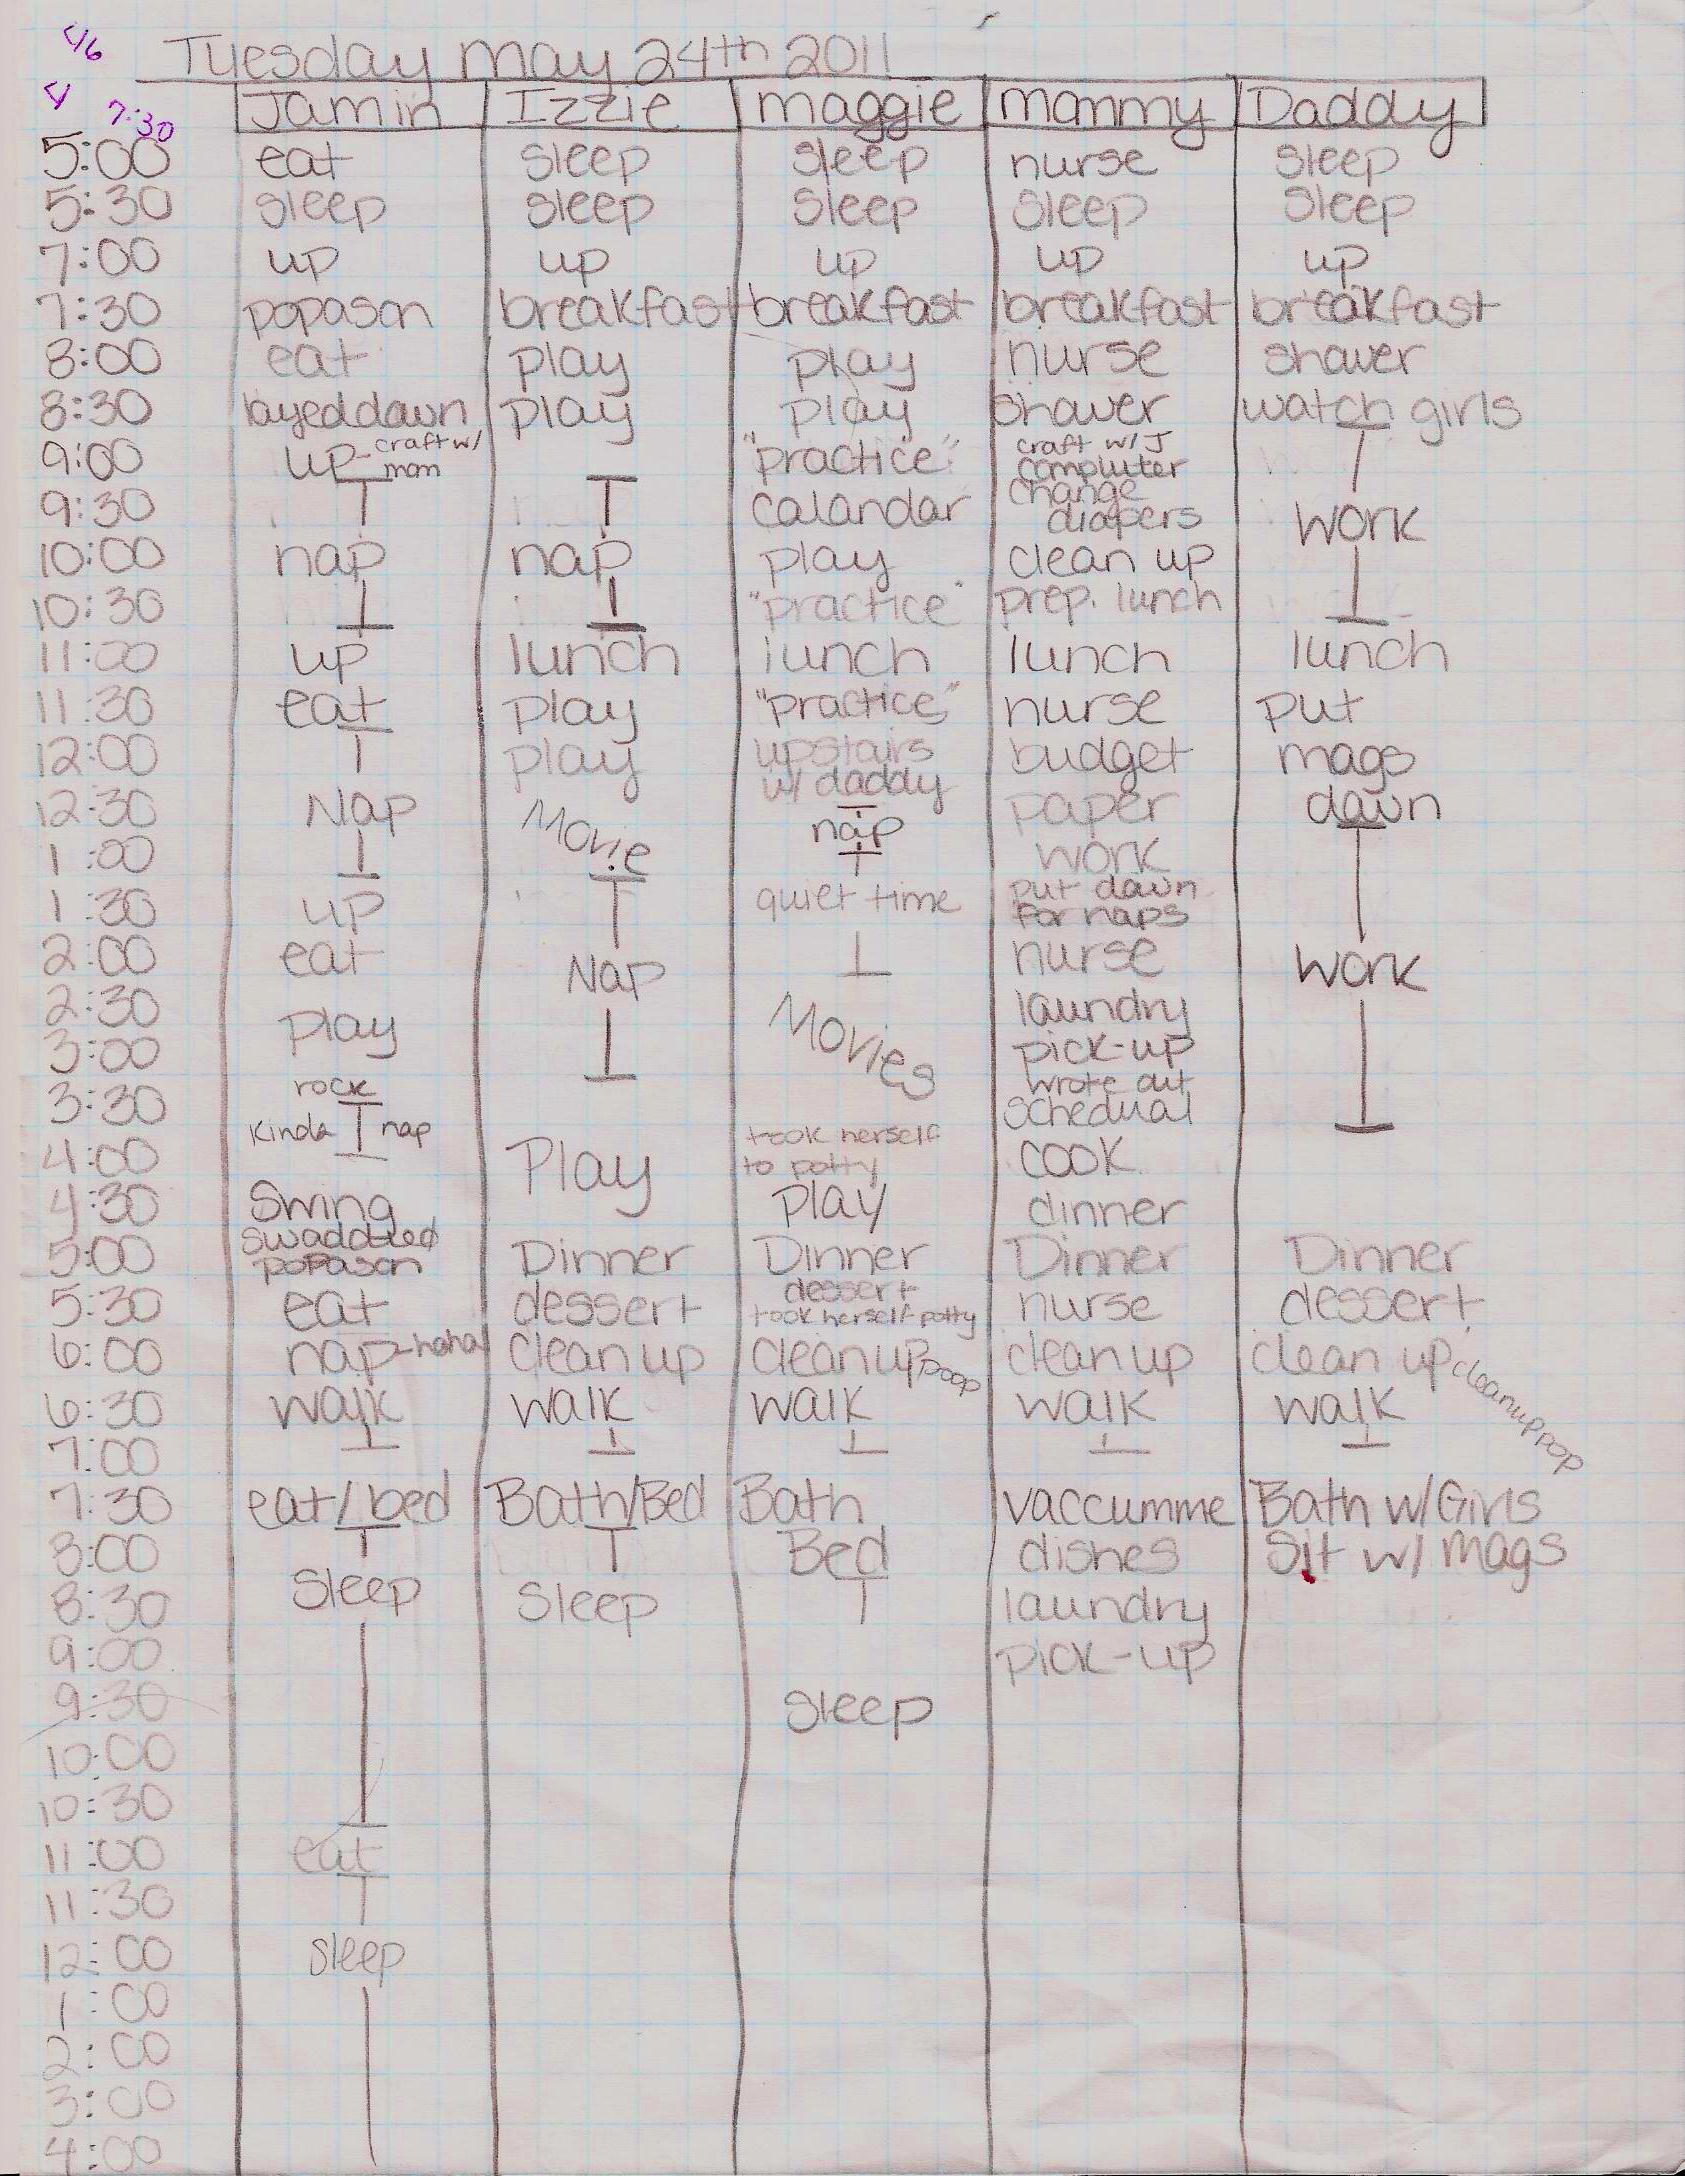 46
4 7:30
Tuesday may 24th 2011
Jamin Izzie maggie mommy Daddy
5:00 eat sleep sleep nurse sleep
5:30 sleep sleep sleep sleep sleep
7:00 up up up up up
7:30 popason breakfast breakfast breakfast breakfast
8:00 eat play play nurse shower
8:30 layed down play play shower watch girls
9:00 up - craft w/ mom "practice" craft w/ J computer
9:30 calandar change diapers work
10:00 nap nap play clean up
10:30 "practice" prep. lunch
11:00 up lunch lunch lunch lunch
11:30 eat play "practice" nurse put
12:00 play upstairs w/ daddy budget mags
12:30 Nap Movie nap paper down
1:00 work
1:30 up quiet time put down for naps
2:00 eat Nap nurse work
2:30 play Movies laundry
3:00 pick-up
3:30 rock wrote out schedual
kinda nap took herself
4:00 Play to potty cook
4:30 Swing play dinner
swaddled
5:00 popason Dinner Dinner Dinner Dinner
5:30 eat dessert dessert took herself potty nurse dessert
6:00 nap - haha clean up clean up poop clean up clean up clean up poop
6:30 walk walk walk walk walk
7:00
7:30 eat/bed Bath/Bed Bath vaccumme Bath w/ Girls
8:00 Sleep Bed dishes Sit w/ mags
8:30 Sleep laundry
9:00 pick-up
9:30 sleep
10:00
10:30
11:00 eat
11:30
12:00 sleep
1:00
2:00
3:00
4:00